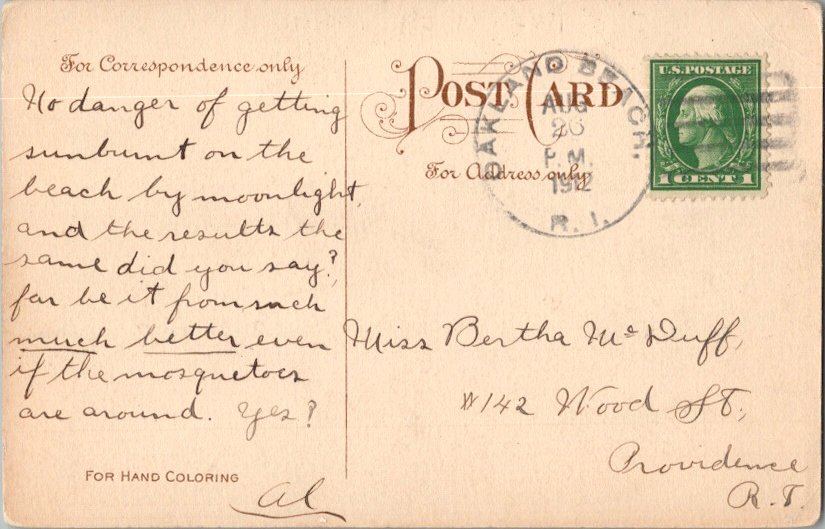 For Correspondence only
No danger of getting
sunburnt on the
beach by moonlight,
and the results the
same did you say?,
far be it from such
much better even
if the mosquetoes
are around. Yes?
FOR HAND COLORING
Al
POST CARD
For Address only
OAKLAND BEACH,
AUG
26
P.M.
1912
R. I.
U.S. POSTAGE
1 CENT 1
Miss Bertha McDuff,
#142 Wood St.,
Providence
R. I.